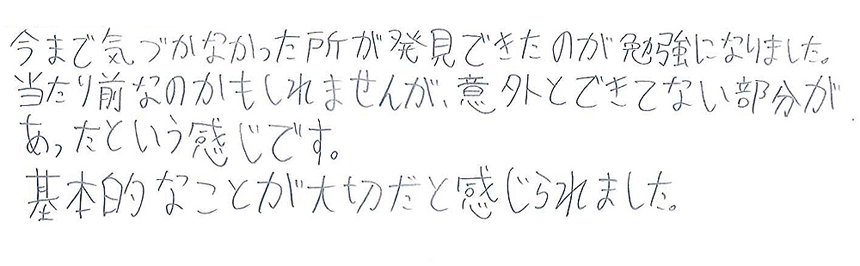 今まで気づかなかった所が発見できたのが勉強になりました。
当たり前なのかもしれませんが、意外とできてない部分が
あったという感じです。
基本的なことが大切だと感じられました。